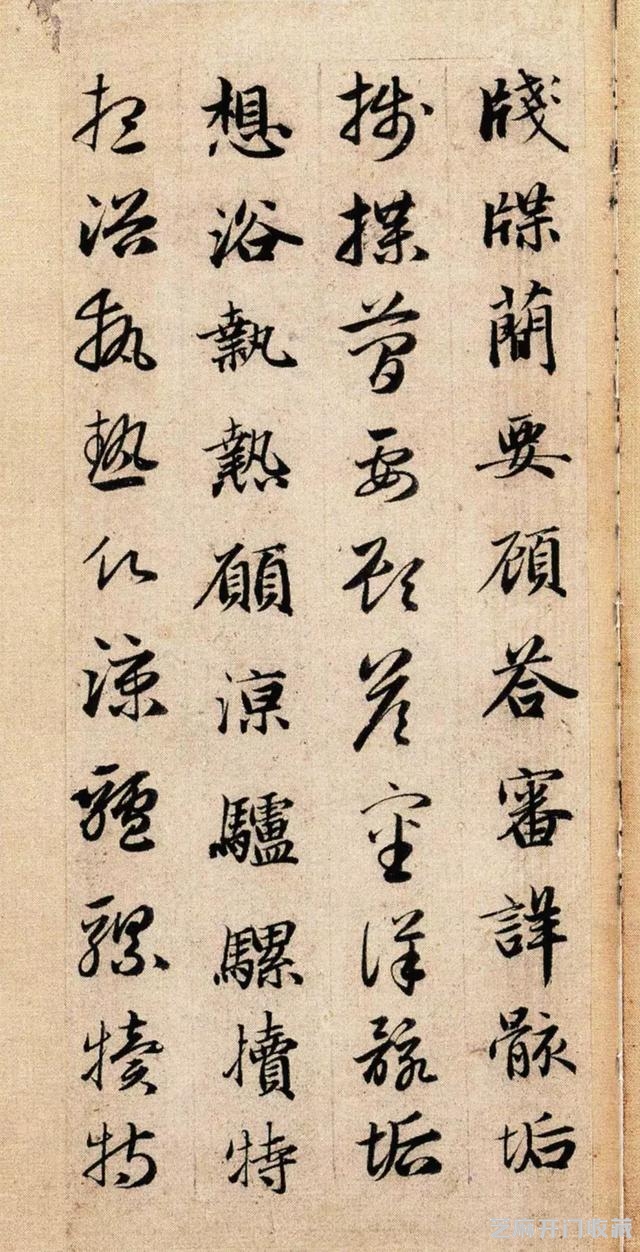 牋牒簡要顧荅審詳骸垢
牋牒簡要顧荅審詳骸垢
想浴執熱願涼驢騾犢特
想浴執熱願涼驢騾犢特
芝麻开门收藏